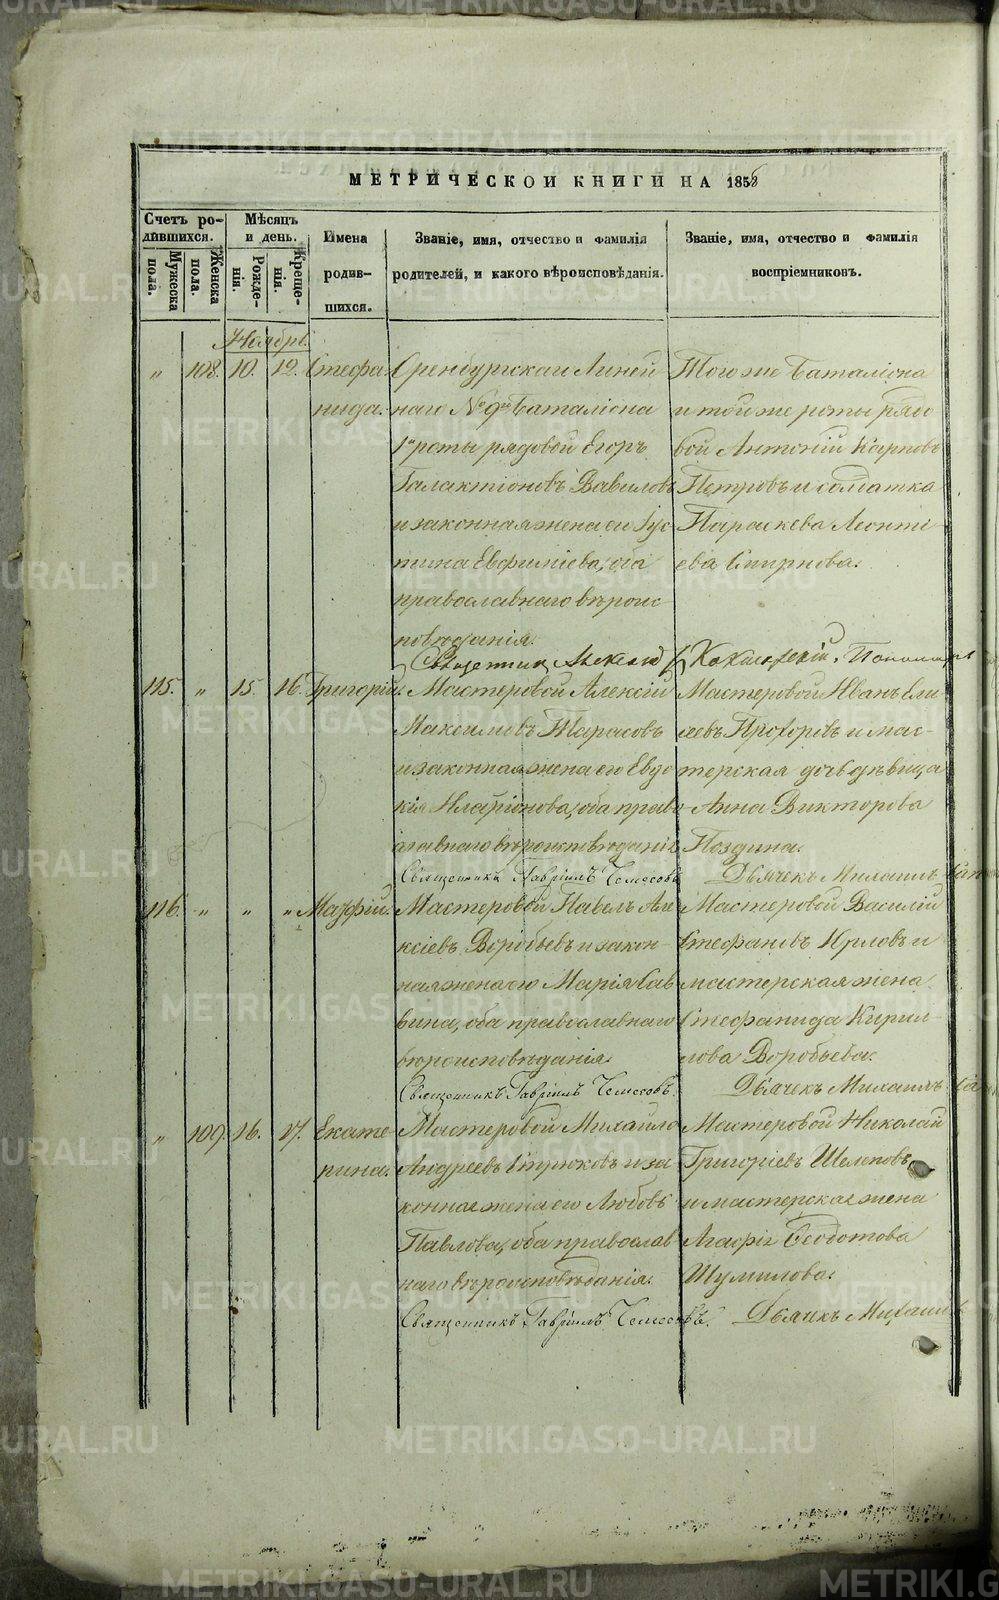 МЕТРИЧЕСКОЙ КНИГИ НА 1856
Счетъ родившихся.
Мужеска пола.
Женска пола.
Мѣсяцъ и день.
Рожденія.
Крещенія.
Имена родившихся.
Званіе, имя, отчество и фамилія
родителей, и какого вѣроисповѣданія.
Званіе, имя, отчество и фамилія
воспріемниковъ.
Ноябрь.
" 108. 10. 12. Стефа-
нида.
Оренбургскаго Линей
наго № 9го Баталіона
1й роты рядовой Егоръ
Галактіоновъ Вавиловъ
и законная жена его Іус
тина Евфиміева, оба
православнаго вѣроис-
повѣданія.
Того же Баталіона
и той же роты рядо
вой Антоній Карповъ
Петровъ и солдатка
Параскева Леонті-
ева Смирнова.
Священникъ Алексѣй Пономарь
115. " 15. 16. Григорій.
Мастеровой Алексій
Максимовъ Тарасовъ
и законная жена его Евдо
кія Иларіонова, оба право
славнаго вѣроисповѣданія
Мастеровой Иванъ Ели
сеевъ Прохоровъ и мас-
терская дочь дѣвица
Анна Викторова
Поздина.
Священникъ Гавріилъ Дьячекъ Михаилъ
116. " " " Матѳій.
Мастеровой Павелъ Але
ксіевъ Воробьевъ и закон-
ная жена его Марія Сав
вина, оба православнаго
вѣроисповѣданія.
Мастеровой Василій
Стефановъ Орловъ и
мастерская жена
Стефанида Кирил-
лова Воробьева.
Священникъ Гавріилъ Дьячекъ Михаилъ
" 109. 16. 17. Екате-
рина.
Мастеровой Михайло
Андреевъ Бирюковъ и за
конная жена его Любовь
Павлова, оба православ
наго вѣроисповѣданія.
Мастеровой Николай
Григоріевъ Шелеповъ
и мастерская жена
Агафія Ѳеодотова
Шумилова.
Священникъ Гавріилъ Дьячекъ Михаилъ
METRIKI.GASO-URAL.RU